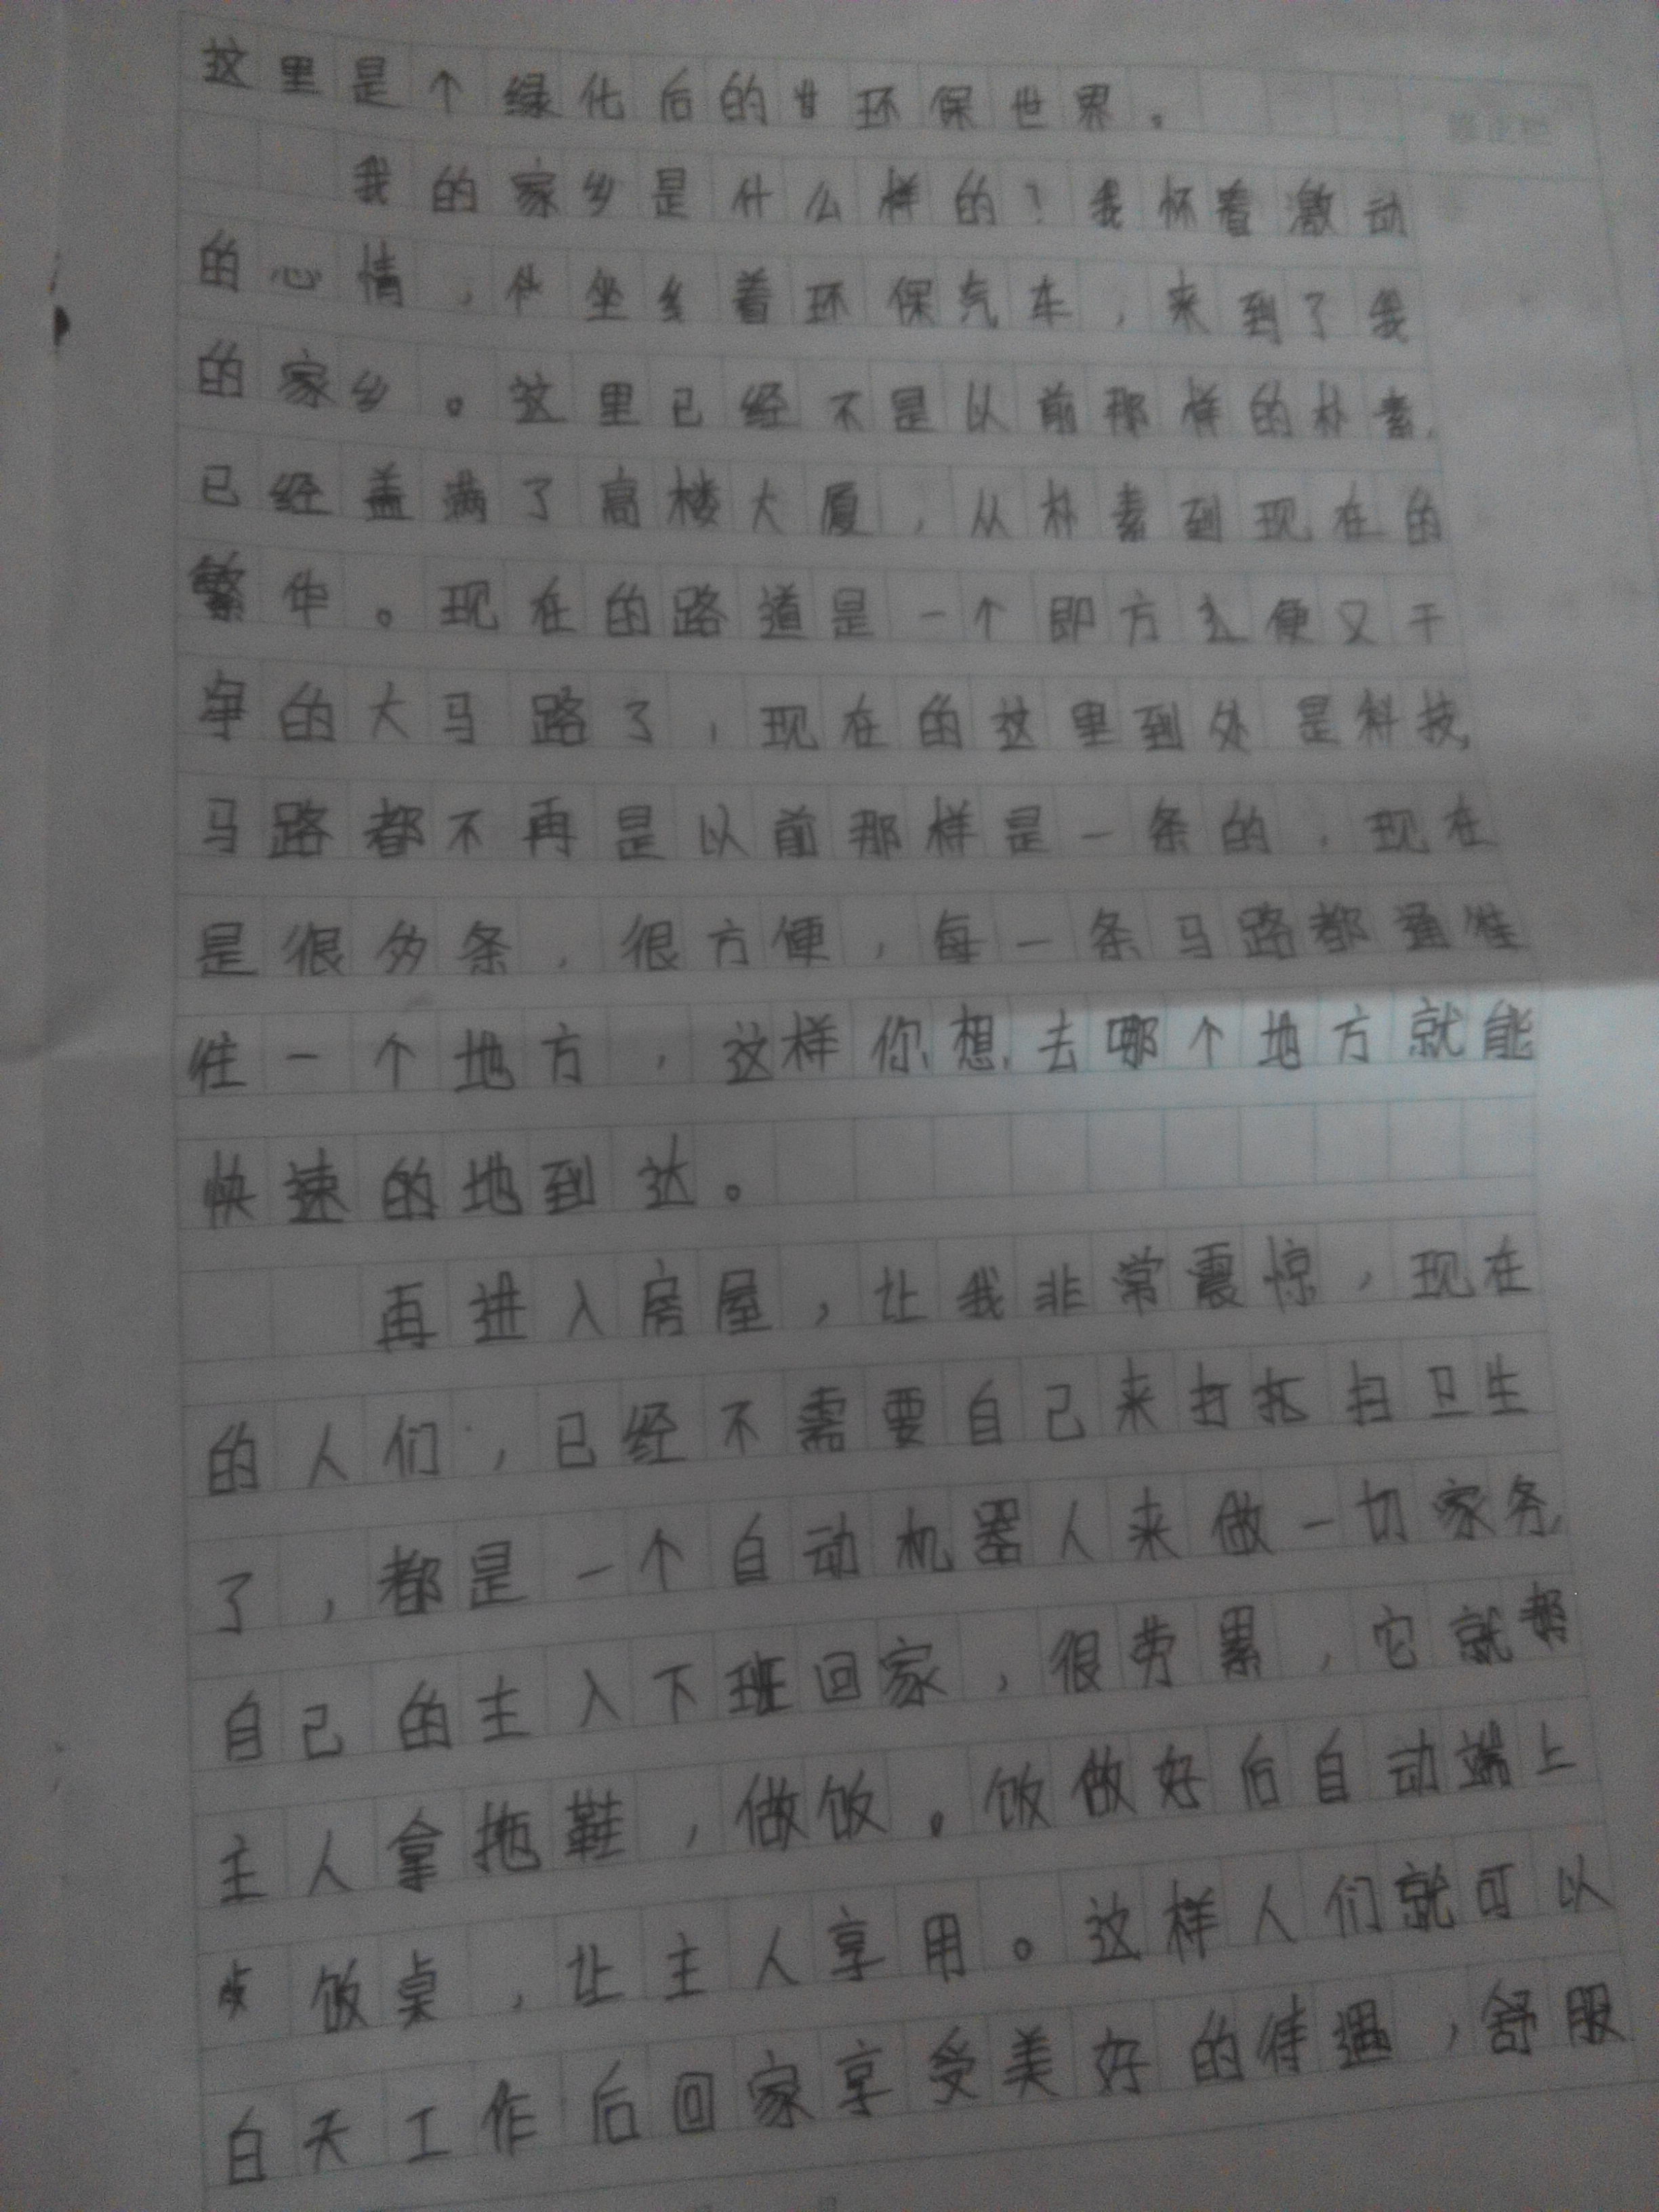 这里是个绿化后的环保世界。
我的家乡是什么样的？我怀着激动
的心情，坐着环保汽车，来到了我
的家乡。这里已经不是以前那样的朴素，
已经盖满了高楼大厦，从朴素到现在的
繁华。现在的路道是一个即方便又干
净的大马路了，现在的这里到处是科技，
马路都不再是以前那样是一条的，现在
是很多条，很方便，每一条马路都通往
往一个地方，这样你想去哪个地方就能
快速的地到达。
再进入房屋，让我非常震惊，现在
的人们，已经不需要自己来打扫卫生
了，都是一个自动机器人来做一切家务，
自己的主人下班回家，很劳累，它就帮
主人拿拖鞋，做饭。饭做好后自动端上
饭桌，让主人享用。这样人们就可以
白天工作后回家享受美好的待遇，舒服